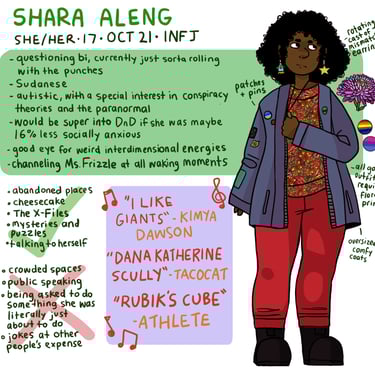 SHARA ALENG
SHE/HER·17·OCT 21·INFJ
- questioning bi, currently just sorta rolling
with the punches
- Sudanese
- autistic, with a special interest in conspiracy
theories and the paranormal
- Would be super into DnD if she was maybe
16% less socially anxious
- good eye for weird interdimensional energies
- channeling Ms. Frizzle at all waking moments
rotating
cast of
mismatch
earrin
patches
+ pins
all go
outfit
requi
flora
prin
oversize
comfy
coats
• abandoned places
• cheesecake
• The X-Files
• mysteries and
puzzles
• talking to herself
• crowded spaces
• public speaking
• being asked to do
something she was
literally just
about to do
• jokes at other
people's expense
"I LIKE
GIANTS"-KIMYA
DAWSON
"DANA KATHERINE
SCULLY"-TACOCAT
"RUBIK'S CUBE"
-ATHLETE